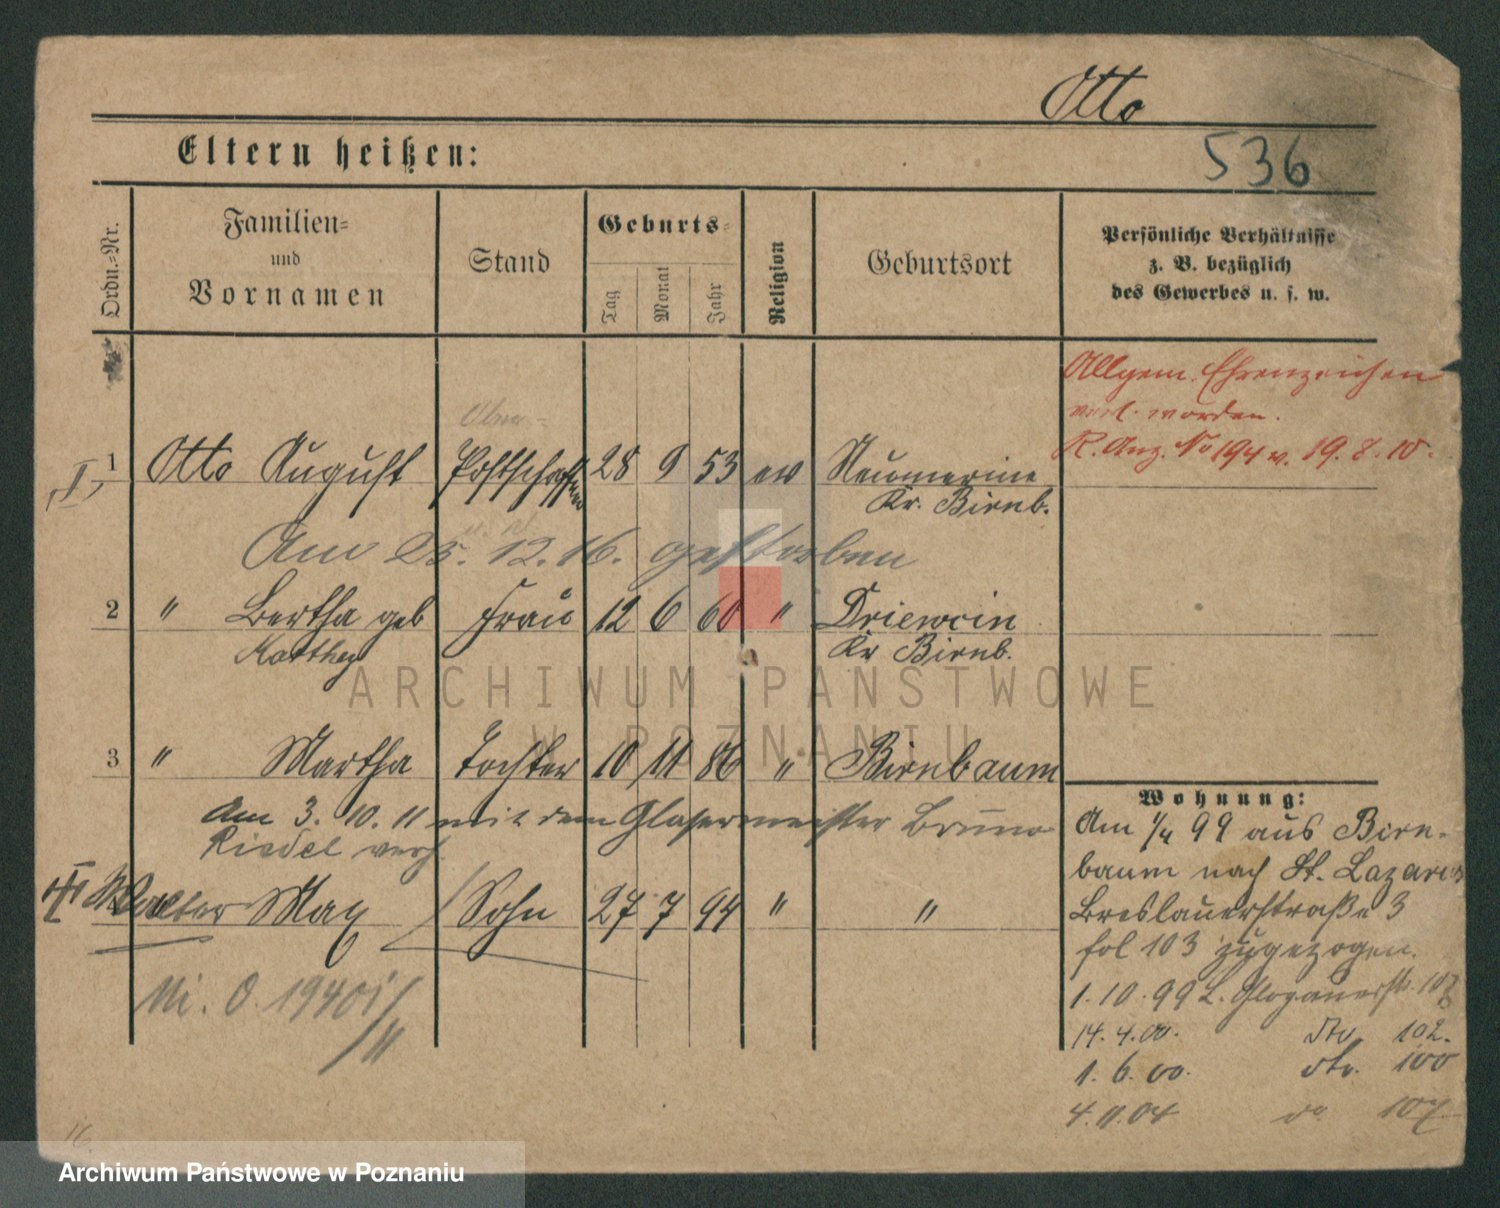 Otto
Eltern heißen:
536
Ordn.-Nr.
Familien-
und
Vornamen
Stand
Geburts-
Tag
Monat
Jahr
Religion
Geburtsort
Persönliche Verhältnisse
z. B. bezüglich
des Gewerbes u. s. w.
Allgem. Ehrenzeichen
verl. worden.
R. Anz. No 194 v. 19. 8. 10.
Ober-
1 Otto August Postschaffner 28 9 53 ev Neumerine
Kr. Birnb.
Am 25. 12. 16. gestorben
2 " Bertha geb Frau 12 6 60 " Driewcin
Matthey Kr Birnb.
3 " Martha Tochter 10 11 86 " Birnbaum
Am 3. 10. 11 mit dem Glasermeister Bruno
Riedel verh.
Walter Max Sohn 27 7 94 " "
Mi. O. 1940
Wohnung:
Am 1/4 99 aus Birn-
baum nach St. Lazarus
Breslauerstraße 3
fol 103 zugezogen.
1. 10. 99 L. Glogauerstr. 107
14. 4. 00. 102.
1. 6. 00. dto. 100
4. 11. 04 do 107
16.
ARCHIWUM PAŃSTWOWE
W POZNANIU
Archiwum Państwowe w Poznaniu